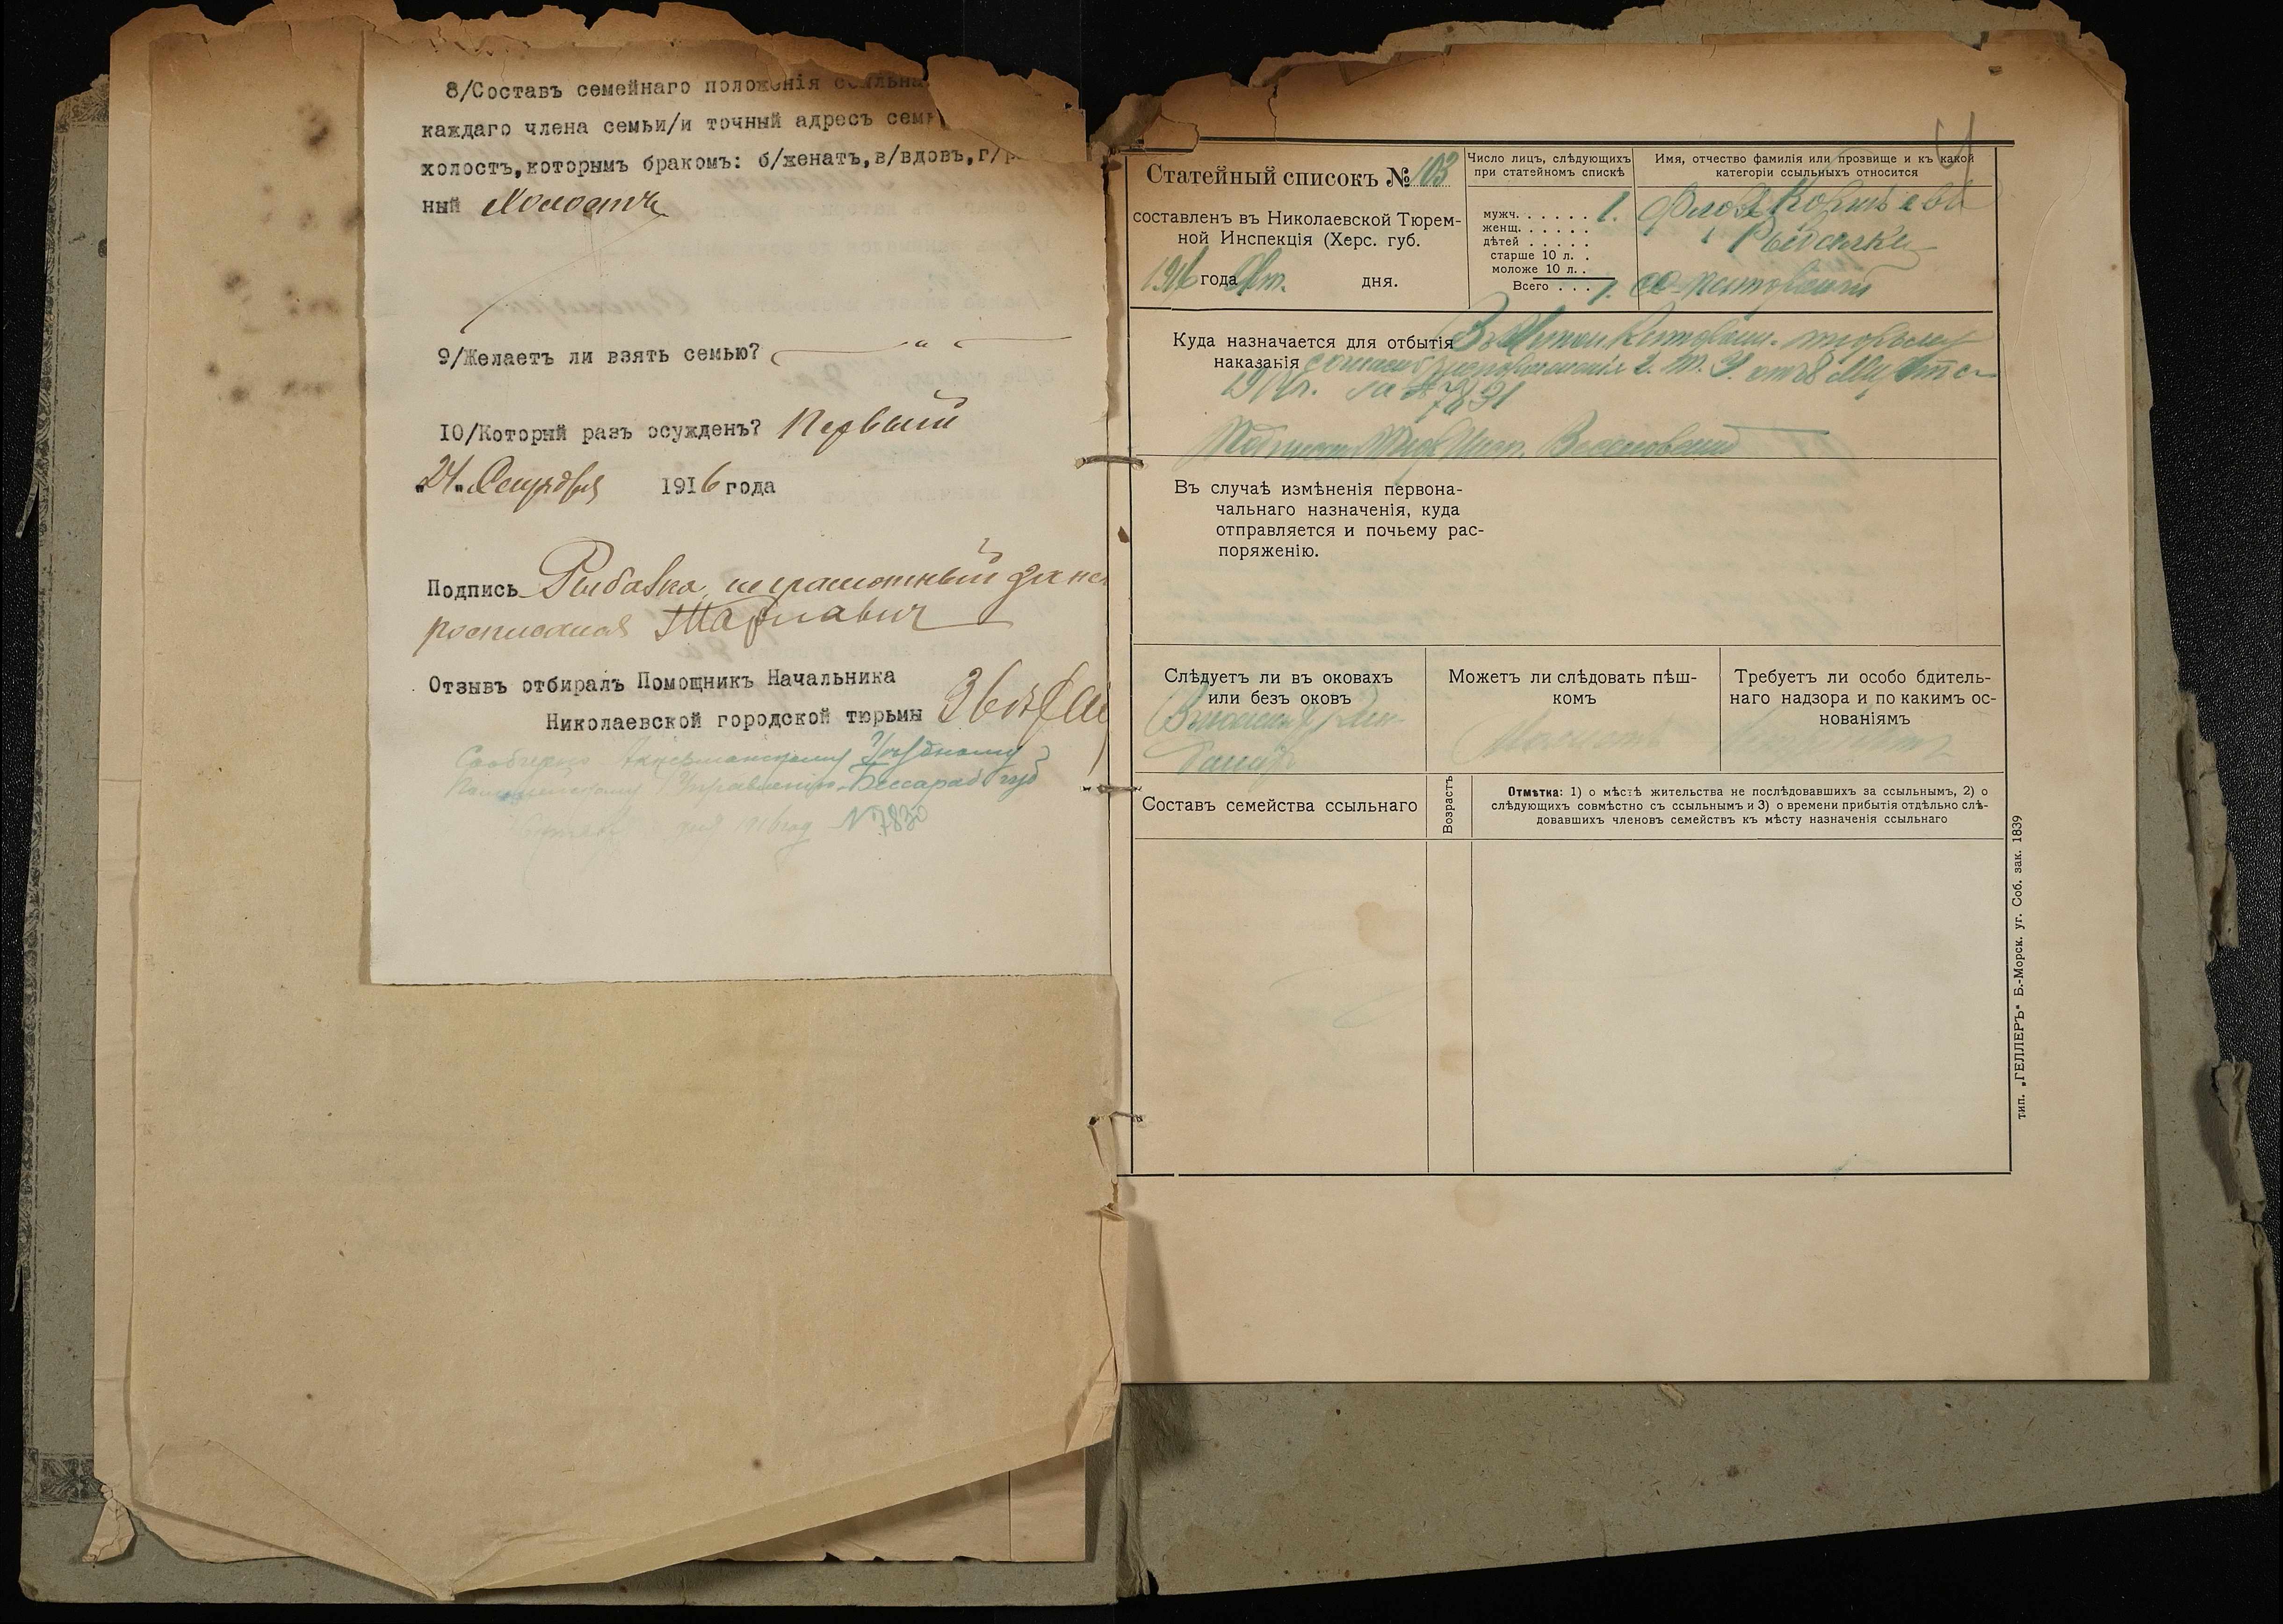 8/Составъ семейнаго положенія
каждаго члена семьи/и точный адресъ
холостъ,которымъ бракомъ: б/женатъ,в/вдовъ,г/
ный Холостъ
9/Желаетъ ли взять семью? "
10/Который разъ осужденъ? Первый
"24" Сентября 1916 года
Подпись Рыбалка, неграмотный за не
росписался
Отзывъ отбиралъ Помощникъ Начальника
Николаевской городской тюрьмы
Сообщено Аккерманскому Уѣздному
Полицейскому Управленію Бессараб губ
1916 год № 7830
Статейный списокъ № 103
составленъ въ Николаевской Тюрем-
ной Инспекція (Херс. губ.
1916 года Окт. дня.
Число лицъ, слѣдующихъ
при статейномъ спискѣ
мужч. . . . . . 1.
женщ. . . . . .
дѣтей . . . . .
старше 10 л. .
моложе 10 л. .
Всего . . . 1.
Имя, отчество фамилія или прозвище и къ какой
категоріи ссыльныхъ относится
Рыбалки
Куда назначается для отбытія
наказанія
1916 г. за № 7831
Въ случаѣ измѣненія первона-
чальнаго назначенія, куда
отправляется и почьему рас-
поряженію.
Слѣдуетъ ли въ оковахъ
или безъ оковъ
Можетъ ли слѣдовать пѣш-
комъ
Можетъ
Требуетъ ли особо бдитель-
наго надзора и по какимъ ос-
нованіямъ
Составъ семейства ссыльнаго
Возрастъ
Отмѣтка: 1) о мѣстѣ жительства не послѣдовавшихъ за ссыльнымъ, 2) о
слѣдующихъ совмѣстно съ ссыльнымъ и 3) о времени прибытія отдѣльно слѣ-
довавшихъ членовъ семействъ къ мѣсту назначенія ссыльнаго
тип. „ГЕЛЛЕРЪ" Б.-Морск. уг. Соб. зак. 1839